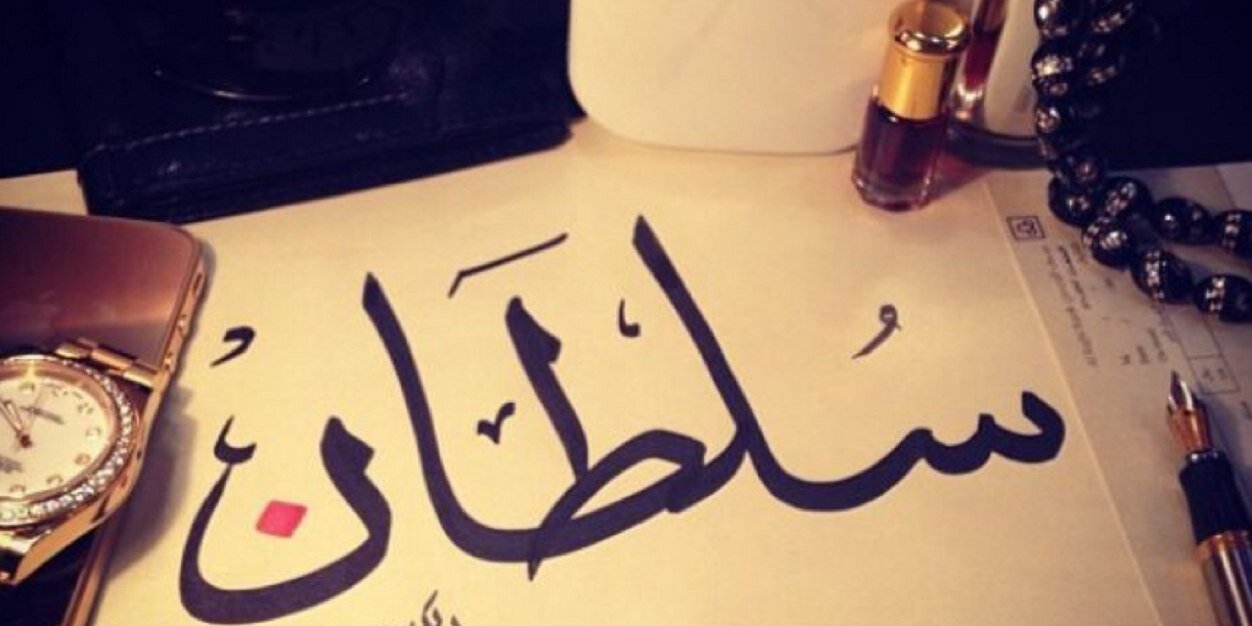 سُلْطَانْ